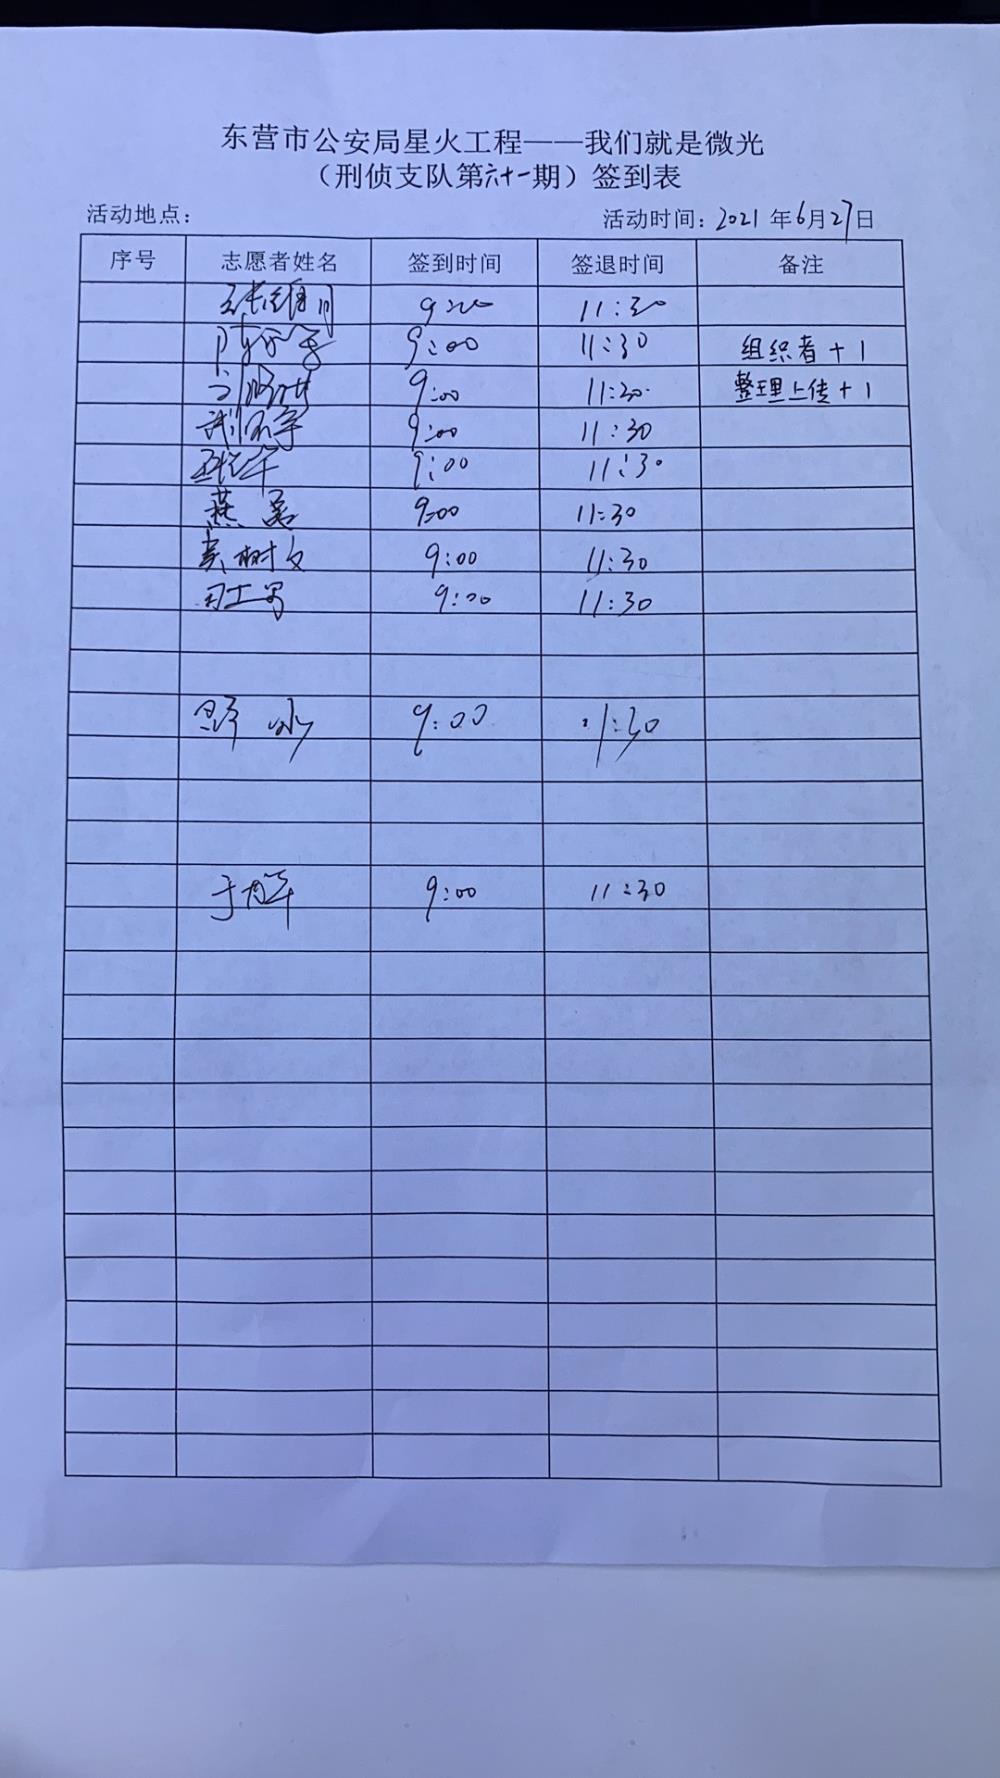 东营市公安局星火工程——我们就是微光
（刑侦支队第六十一期）签到表
活动地点： 活动时间：2021年6月27日
序号 志愿者姓名 签到时间 签退时间 备注
9:00 11:30
9:00 11:30 组织者+1
9:00 11:30 整理上传+1
9:00 11:30
9:00 11:30
燕 9:00 11:30
树 9:00 11:30
9:00 11:30
9:00 11:30
于 9:00 11:30